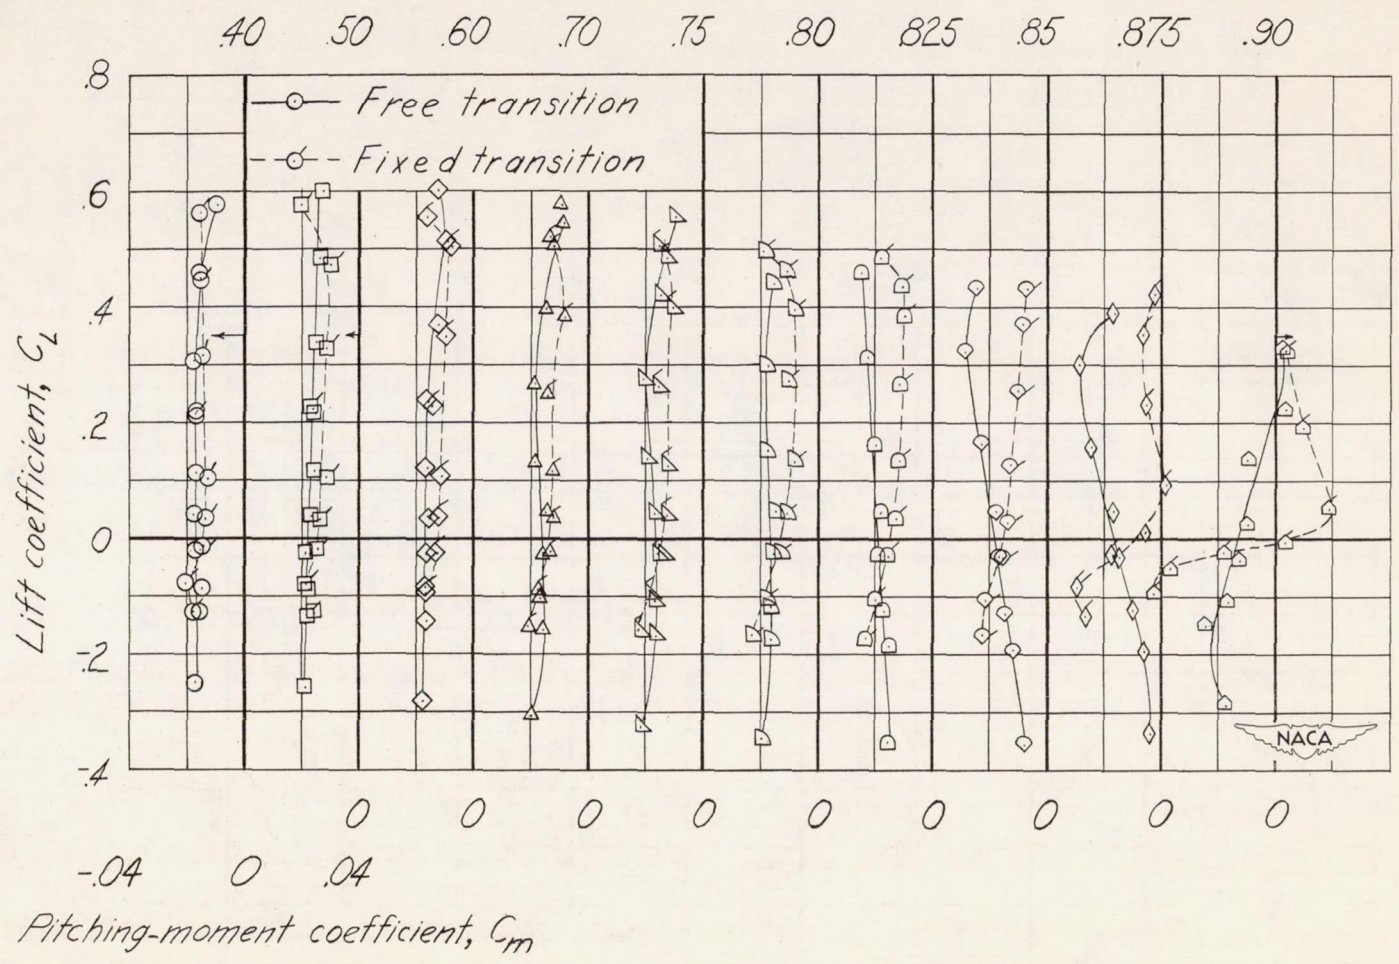 .40 .50 .60 .70 .75 .80 .825 .85 .875 .90
.8
Free transition
Fixed transition
.6
.4
.2
0
-.2
-.4
Lift coefficient, CL
NACA
0 0 0 0 0 0 0 0 0
-.04 0 .04
Pitching-moment coefficient, Cm